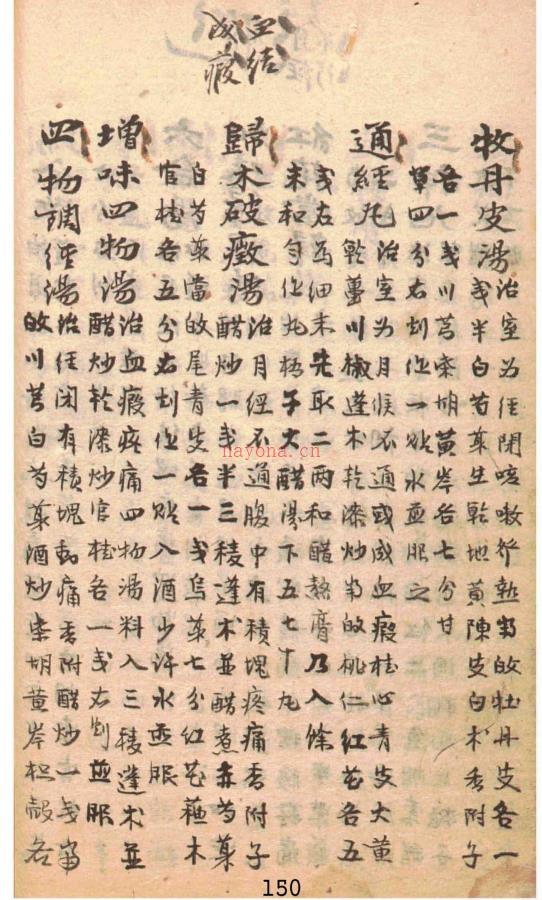 血结
成瘕
牧丹皮湯治室女经閉咳嗽發熱当皈牡丹皮各一
戔半白芍藥生乾地黄陳皮白朮香附子
各一戔川芎柴胡黄芩各七分甘
草四分右剉作一貼水煎服之
通經丸治室女月候不通或成血瘕桂心青皮大黄
乾薑川椒蓬朮乾漆炒当皈桃仁红花各五
戔右為細末先取二两和醋熬膏乃入餘
末和匀作丸梧子大醋湯下五七十丸
歸朮破癥湯治月經不通腹中有積塊疼痛香附子
醋炒一戔半三稜蓬朮並醋煮赤芍藥
白芍藥當皈尾青皮各一戔烏藥七分红花蘓木
官桂各五分右剉作一貼入酒少许水煎服
增味四物湯治血瘕疼痛四物湯料入三稜蓬朮並
醋炒乾漆炒官桂各一戔右剉煎服
四物調經湯治經閉有積塊動痛香附醋炒一戔當
皈川芎白芍藥酒炒柴胡黄芩枳殼各
nayona.cn
150